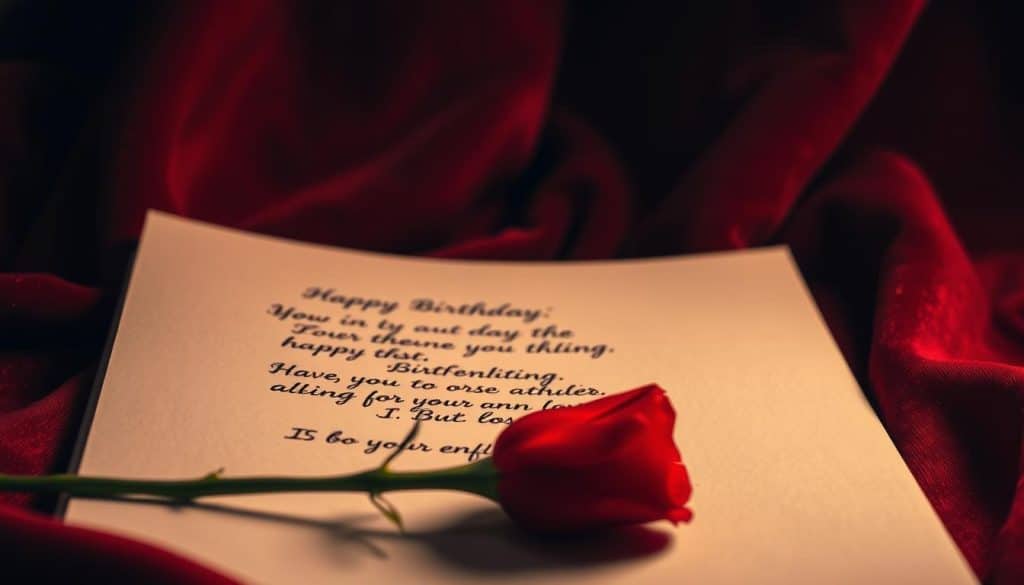 Happy Birthday:
Yow in ty aut day the
Tower theune you thlling.
happy thst.
Birtfenliting.
Have, you to orse athiles.
alking for your ann
I. But los
IS bo your enfl